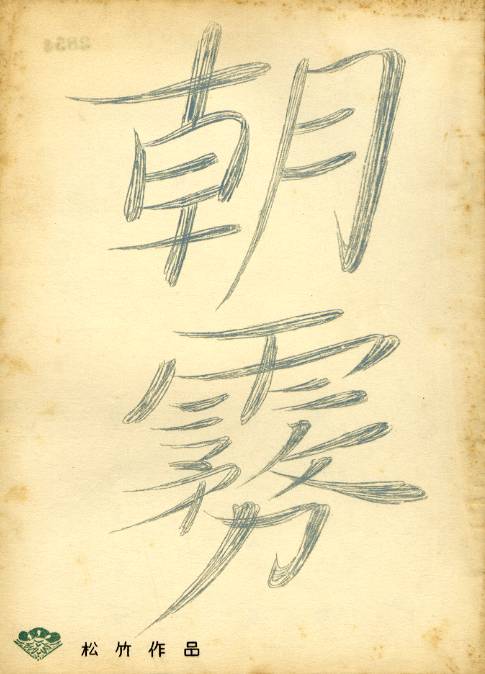 朝霧
松竹作品